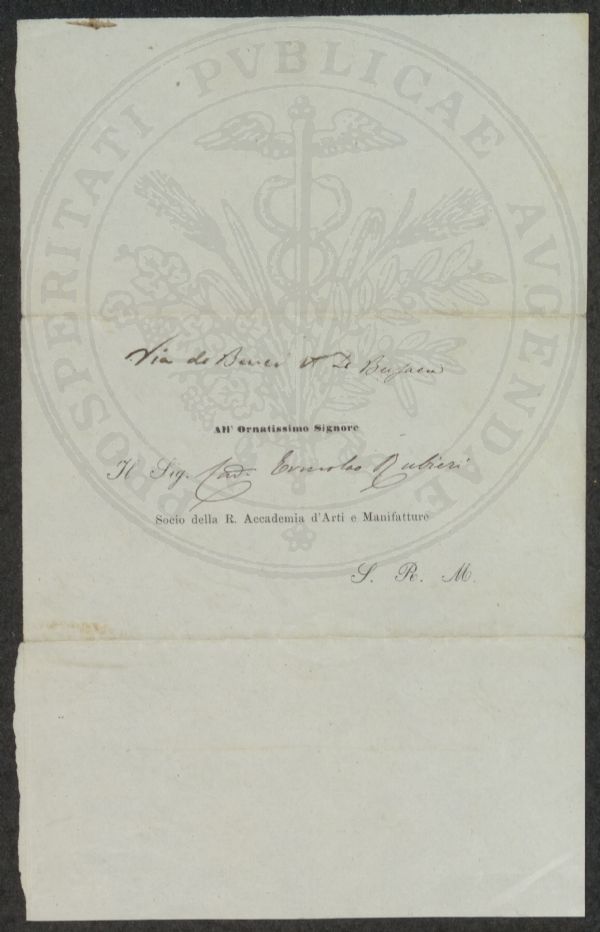 PROSPERITATI PVBLICAE AVGENDAE
Via de Benci
All' Ornatissimo Signore
Il Sig. Cav. Ermolao Rubieri
Socio della R. Accademia d'Arti e Manifatture
S. R. M.